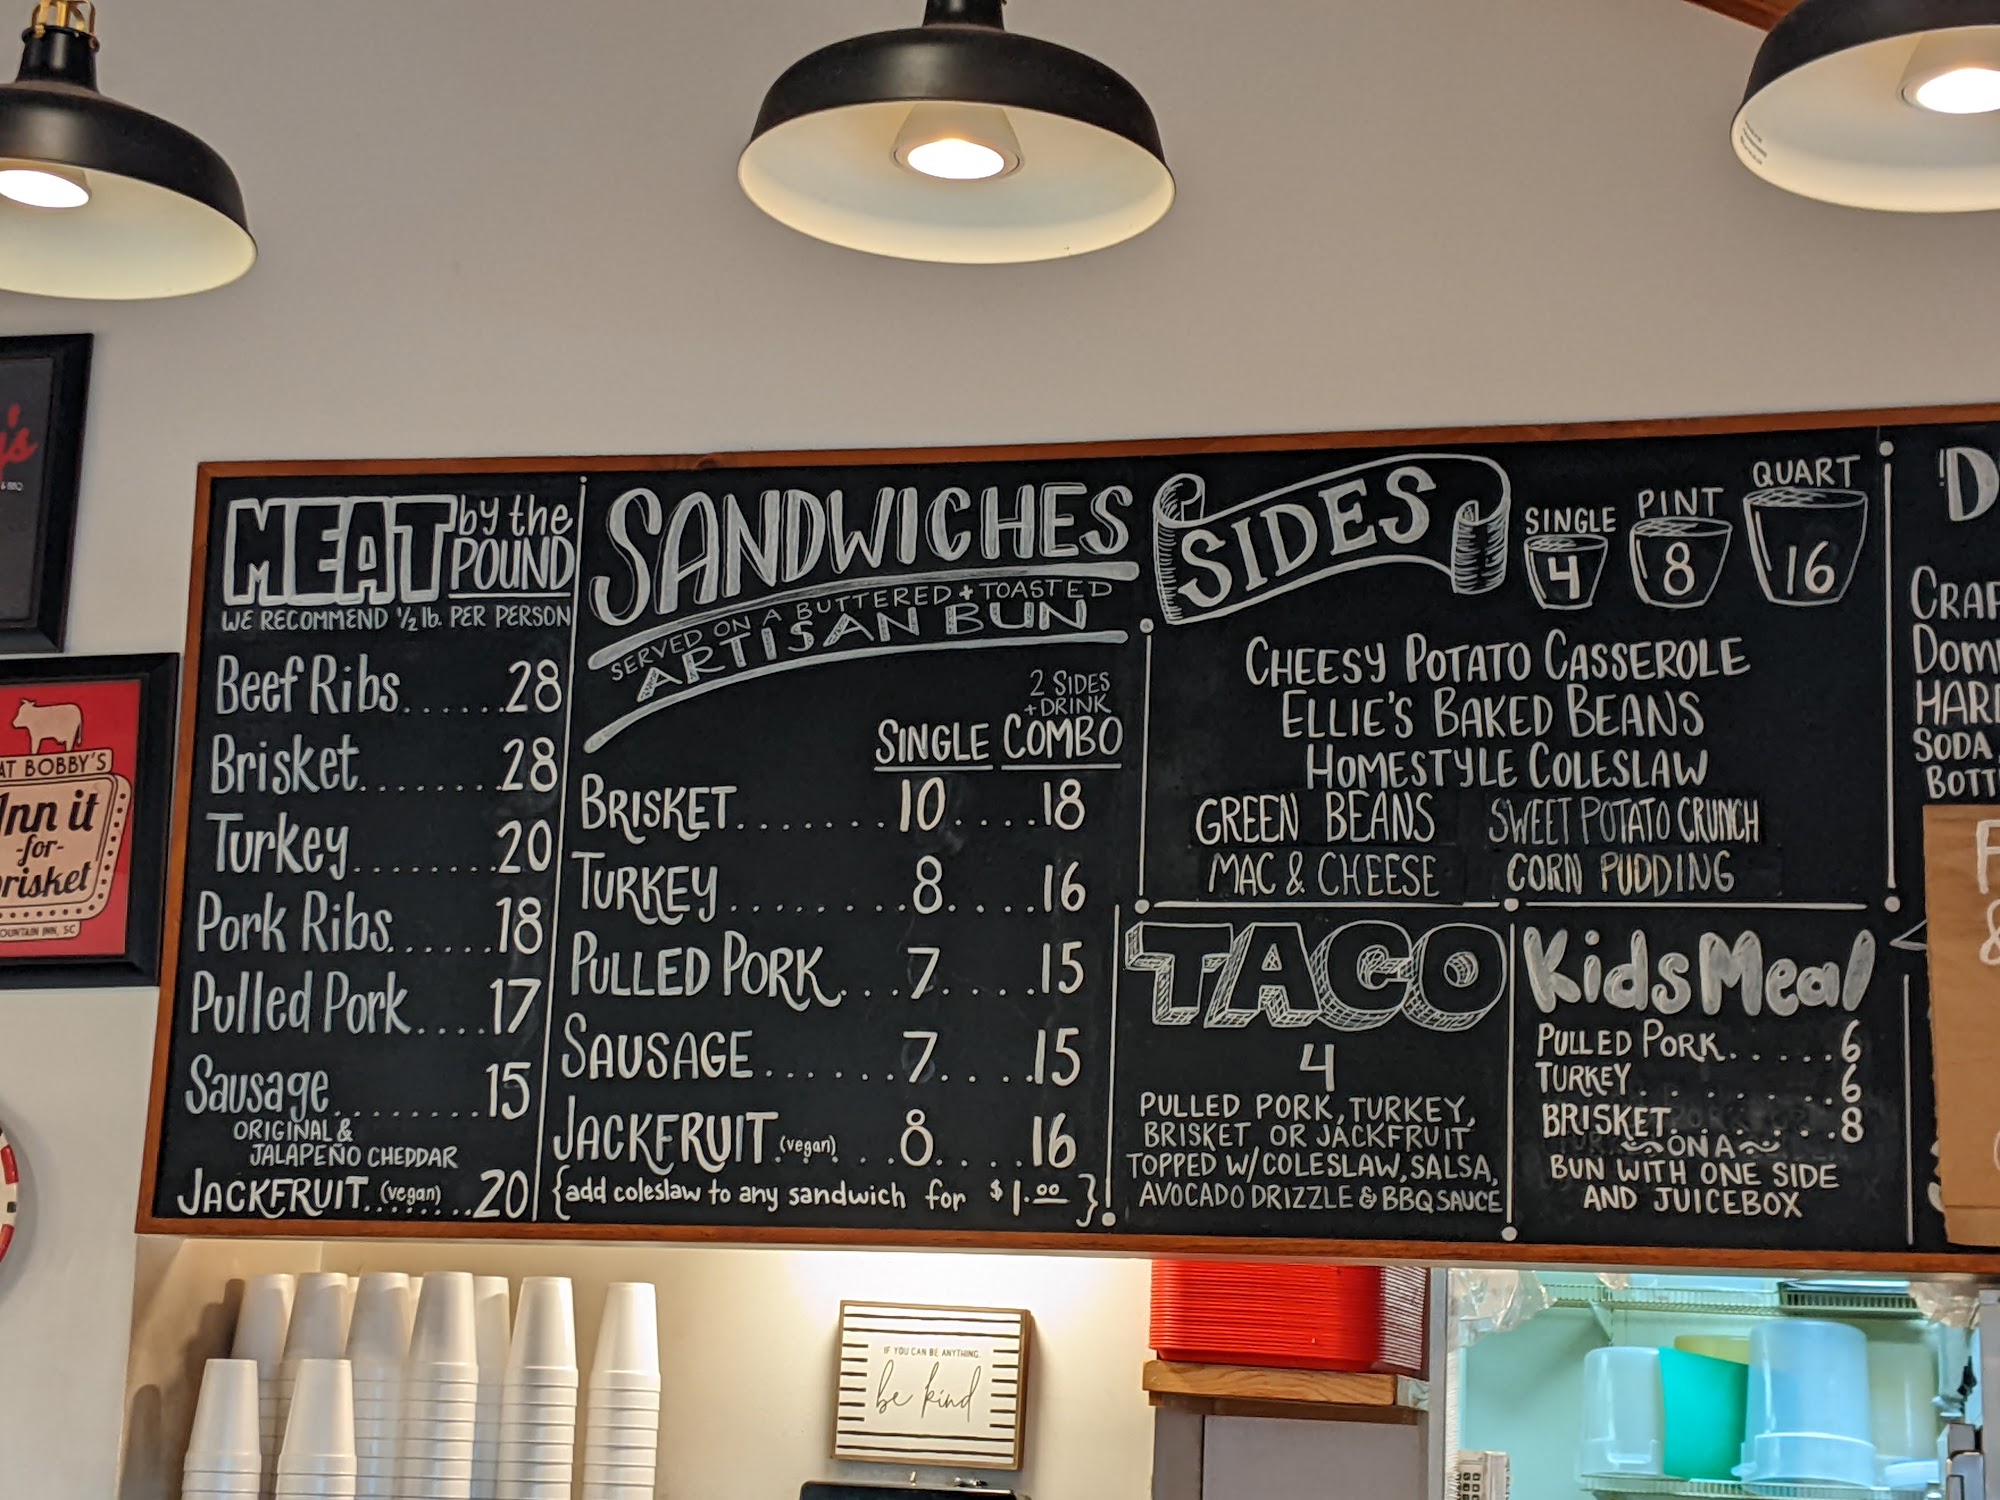 MEAT by the POUND
WE RECOMMEND ½ lb. PER PERSON
Beef Ribs......28
Brisket........28
Turkey........20
Pork Ribs......18
Pulled Pork....17
Sausage........15
ORIGINAL &
JALAPEÑO CHEDDAR
JACKFRUIT (vegan)......20
SANDWICHES
SERVED ON A BUTTERED + TOASTED
ARTISAN BUN
2 SIDES
+ DRINK
SINGLE COMBO
BRISKET........10....18
TURKEY........8....16
PULLED PORK...7....15
SAUSAGE......7....15
JACKFRUIT (vegan)...8....16
{add coleslaw to any sandwich for $1.00}
SIDES
SINGLE 4
PINT 8
QUART 16
CHEESY POTATO CASSEROLE
ELLIE'S BAKED BEANS
HOMESTYLE COLESLAW
GREEN BEANS SWEET POTATO CRUNCH
MAC & CHEESE CORN PUDDING
TACO
4
PULLED PORK, TURKEY,
BRISKET, OR JACKFRUIT
TOPPED W/ COLESLAW, SALSA,
AVOCADO DRIZZLE & BBQ SAUCE
Kids Meal
PULLED PORK.....6
TURKEY........6
BRISKET.......8
ON A
BUN WITH ONE SIDE
AND JUICEBOX
SODA
& BBQ
AT BOBBY'S
Inn it
-for-
brisket
OUNTAIN INN, SC
IF YOU CAN BE ANYTHING,
be kind